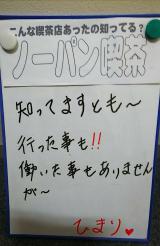 こんな喫茶店あったの知ってる?
ノーパン喫茶
知ってますとも～
行った事も!!
働いた事もありません
が～
ひまり♥